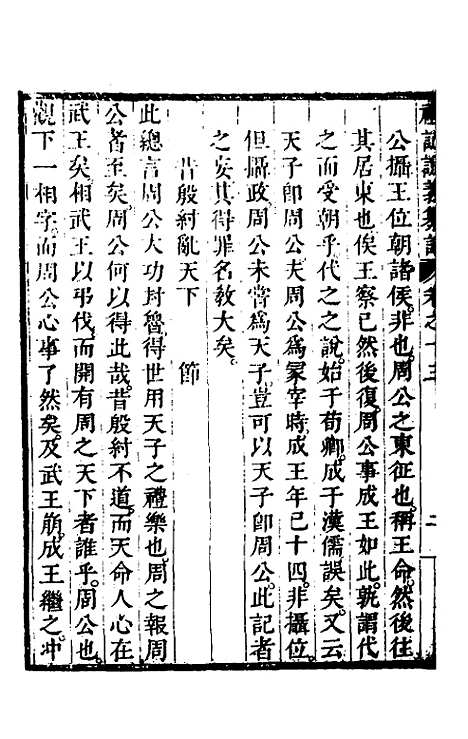 禮記說義纂訂 卷之十三 二
公攝王位朝諸侯非也周公之東征也稱王命然後往
其居東也俟王察己然後復周公事成王如此孰謂代
之而受朝乎代之之說始于荀卿成于漢儒誤矣又云
天子卽周公夫周公爲冢宰時成王年已十四非攝位
但攝政周公未嘗爲天子豈可以天子卽周公此記者
之妄其得罪名教大矣
昔殷紂亂天下 節
此總言周公大功封魯得世用天子之禮樂也周之報周
公者至矣周公何以得此哉昔殷紂不道而天命人心在
武王矣相武王以弔伐而開有周之天下者誰乎周公也
觀下一相字而周公心事了然矣及武王崩成王繼之冲